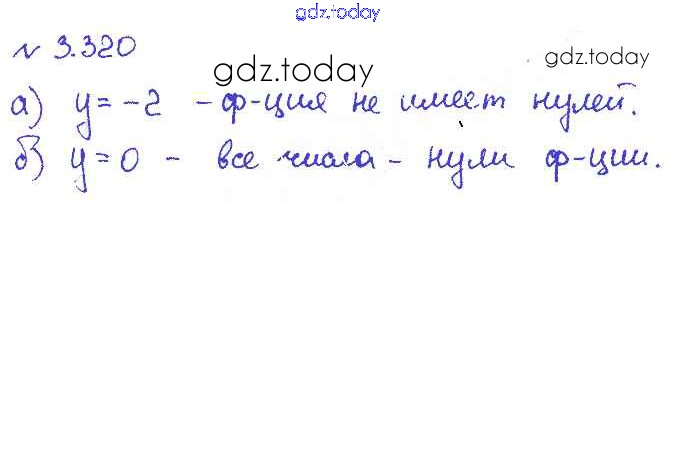 gdz.today
№ 3.320
gdz.today
gdz.today
а) y = -2 - ф-ция не имеет нулей.
б) y = 0 - все числа - нули ф-ции.